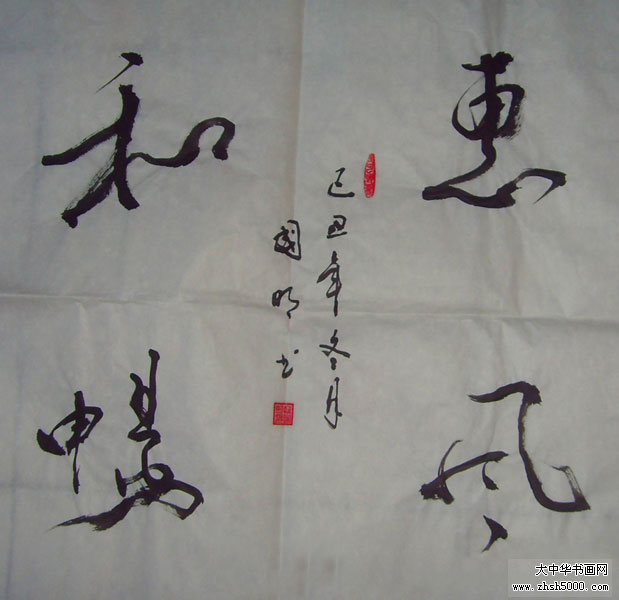 惠风
和畅
己丑年冬月
國明书
大中华书画网
www.zhsh5000.com